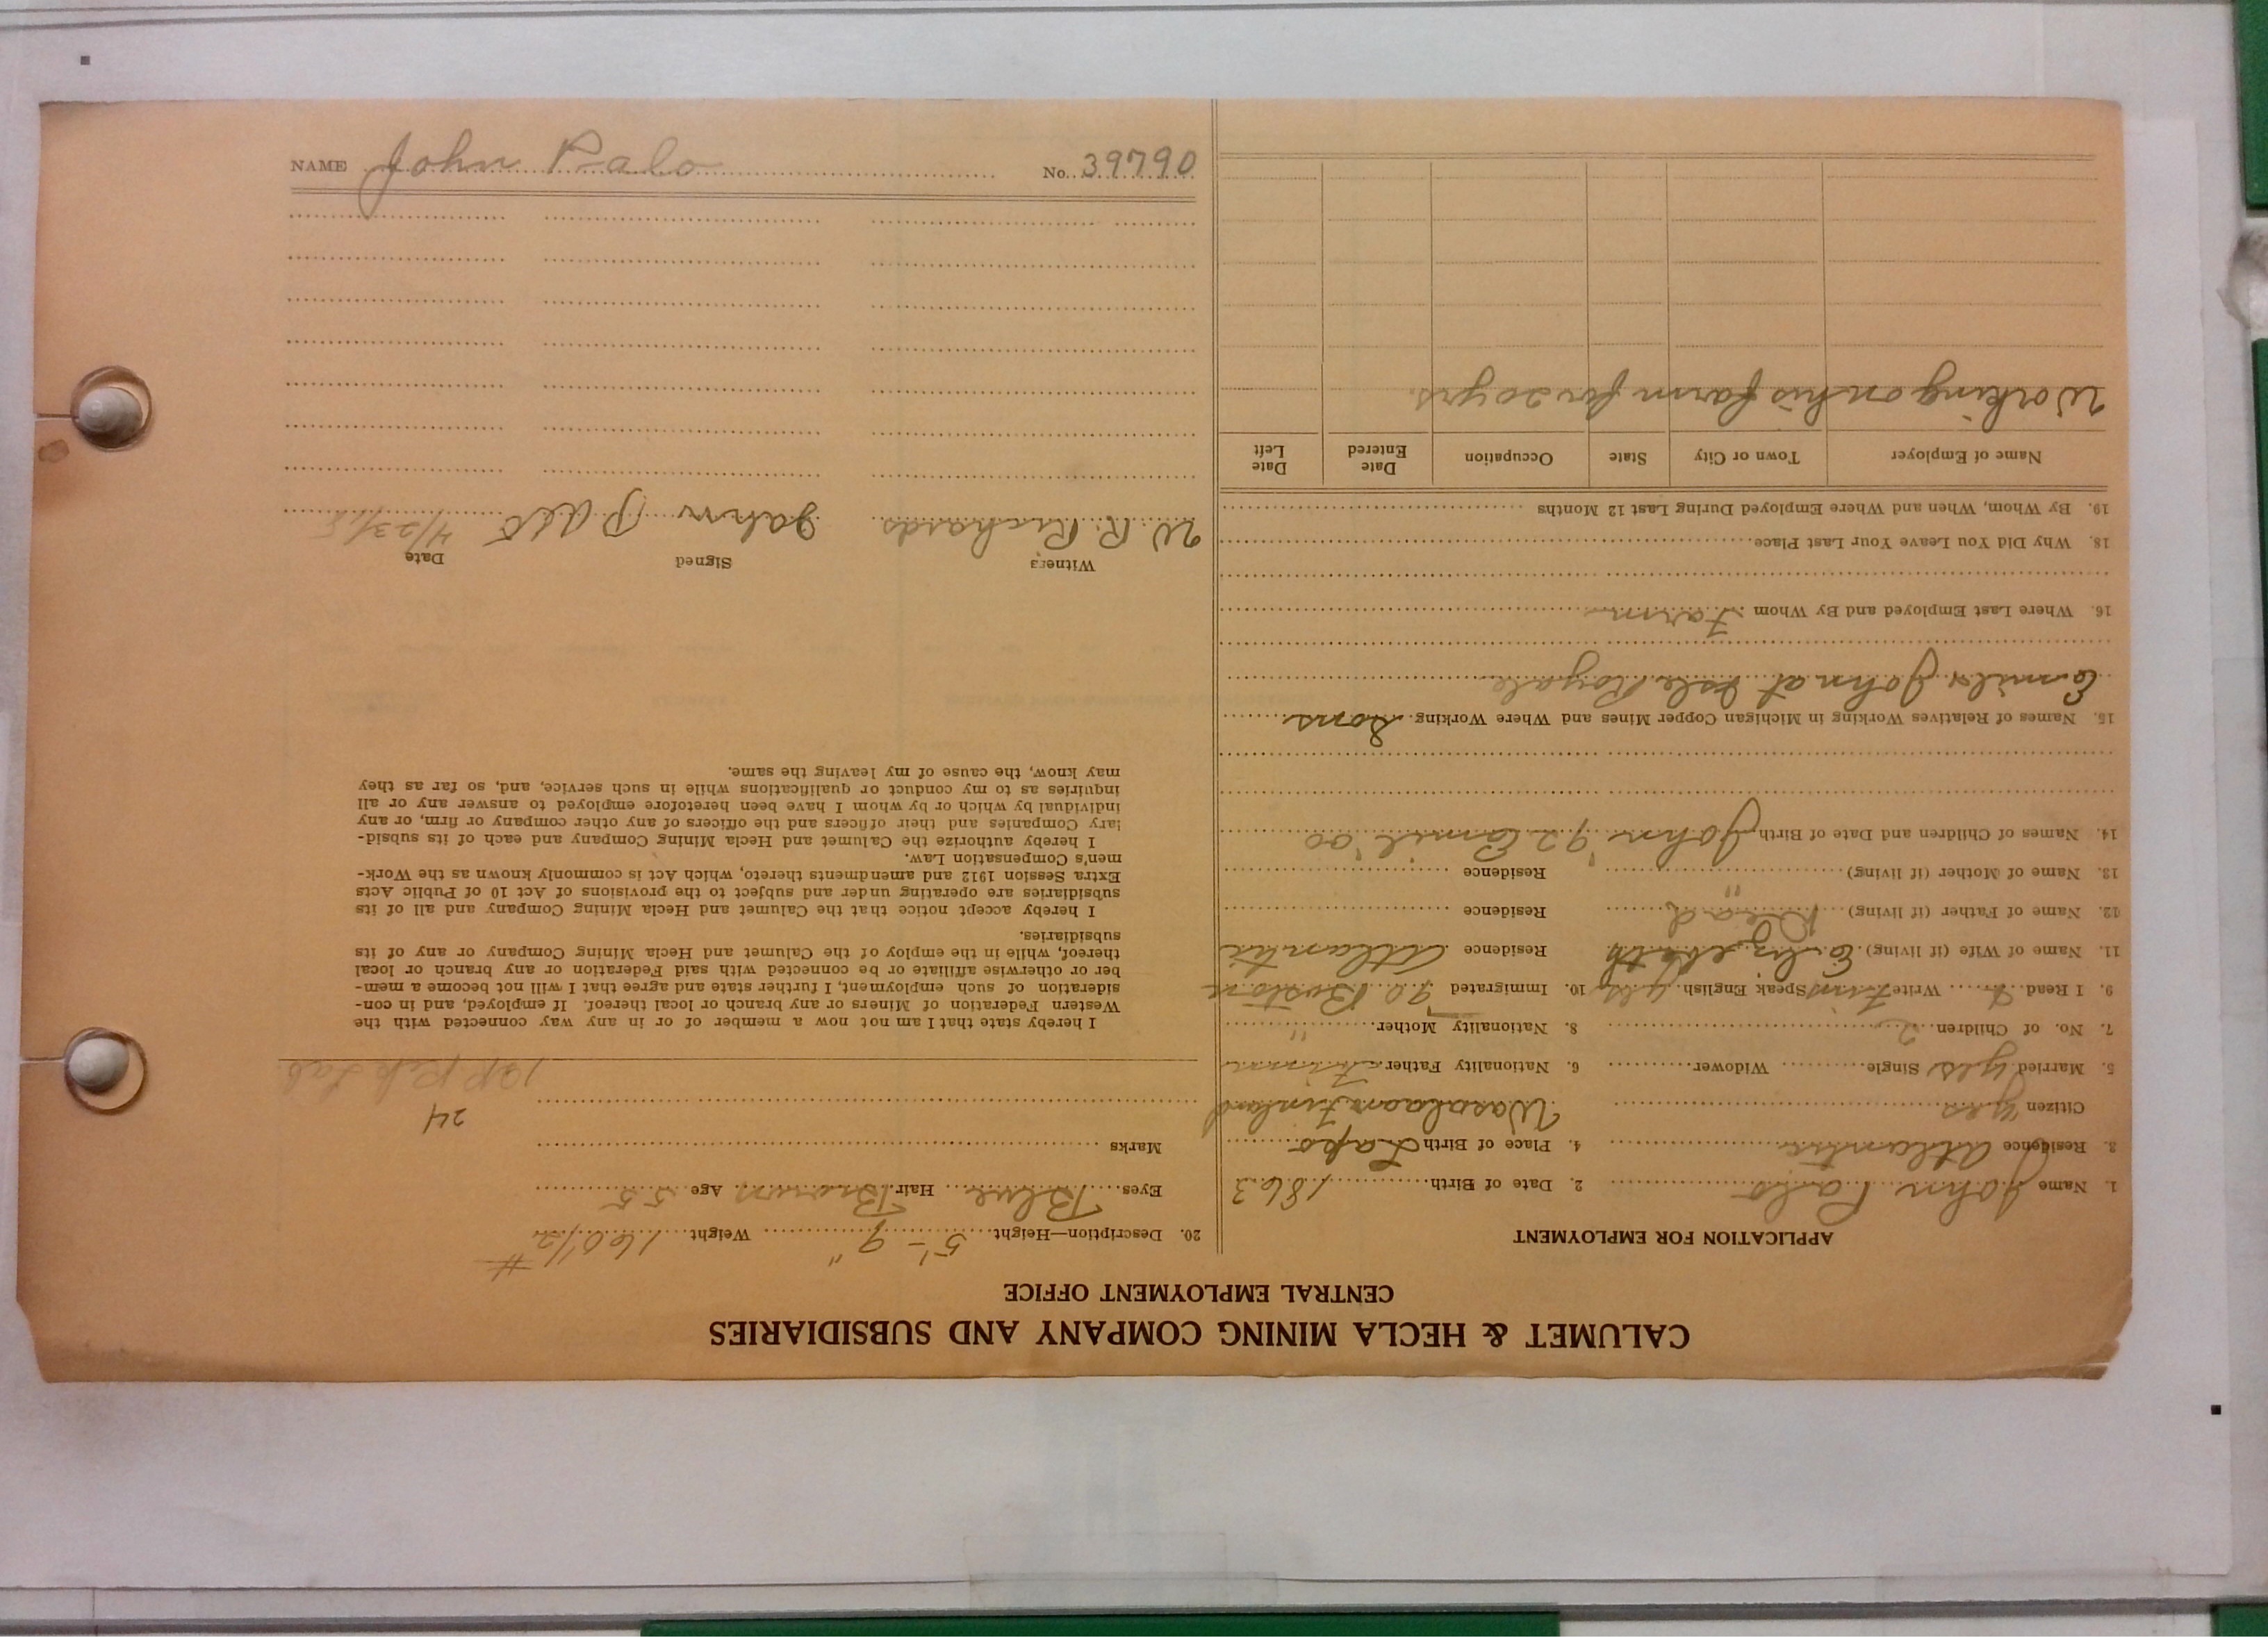 CALUMET & HECLA MINING COMPANY AND SUBSIDIARIES
CENTRAL EMPLOYMENT OFFICE
APPLICATION FOR EMPLOYMENT
1. Name John Palo 2. Date of Birth 1863
3. Residence Atlantic 4. Place of Birth Lapo
Citizen yes Wasalaan Finland
5. Married yes Single Widower 6. Nationality Father Finn
7. No. of Children 2 8. Nationality Mother "
9. I Read Write Finn Speak English yes 10. Immigrated 90 Boston
11. Name of Wife (if living) Elizabeth Residence Atlantic
12. Name of Father (if living) Dead Residence
13. Name of Mother (if living) " Residence
14. Names of Children and Date of Birth John '92 Emil '00
15. Names of Relatives Working in Michigan Copper Mines and Where Working Sons
Emil & John at Isle Royale
16. Where Last Employed and By Whom Farm
18. Why Did You Leave Your Last Place
19. By Whom, When and Where Employed During Last 12 Months
Name of Employer Town or City State Occupation Date Entered Date Left
Working on his farm for 20 yrs.
20. Description—Height 5'-9" Weight 160 1/2 #
Eyes Blue Hair Brown Age 55
Marks
24
I hereby state that I am not now a member of or in any way connected with the
Western Federation of Miners or any branch or local thereof. If employed, and in con-
sideration of such employment, I further state and agree that I will not become a mem-
ber or otherwise affiliate or be connected with said Federation or any branch or local
thereof, while in the employ of the Calumet and Hecla Mining Company or any of its
subsidiaries.
I hereby accept notice that the Calumet and Hecla Mining Company and all of its
subsidiaries are operating under and subject to the provisions of Act 10 of Public Acts
Extra Session 1912 and amendments thereto, which Act is commonly known as the Work-
men's Compensation Law.
I hereby authorize the Calumet and Hecla Mining Company and each of its subsid-
iary Companies and their officers and the officers of any other company or firm, or any
individual by which or by whom I have been heretofore employed to answer any or all
inquiries as to my conduct or qualifications while in such service, and, so far as they
may know, the cause of my leaving the same.
Witness Signed Date
W. R. Richards John Palo 4/23/18
NAME John Palo No. 39790